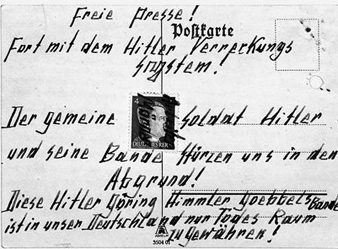 Freie Presse!
Postkarte
Fort mit dem Hitler Verreckungs
System!
4
DEUTSCHES REICH
Der gemeine Soldat Hitler
und seine Bande stürzen uns in den
Abgrund!
Diese Hitler Göring Himmler Goebbels Bande
ist in unser Deutschland nur Todes Raum
zu gewähren!